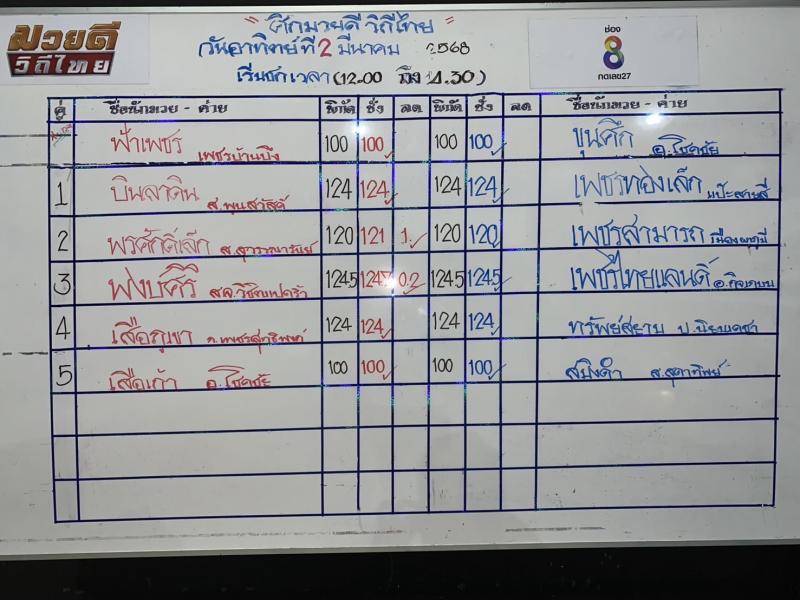 มวยดี
วิถีไทย
" ศึกมวยดี วิถีไทย "
(วันอาทิตย์ ที่ 2 มีนาคม 2568
เริ่มชกเวลา (12.00 ถึง 14.30)
ช่อง
8
กดเลข27
คู่ ชื่อนักมวย - ค่าย พิกัด ชั่ง ลด พิกัด ชั่ง ลด ชื่อนักมวย - ค่าย
ฟ้าเพชร เพชรบ้านบึง 100 100 100 100 ขุนศึก อ.โชคชัย
1 บินลาดิน ส.พูนสวัสดิ์ 124 124 124 124 เพชรทองเล็ก
2 พรศักดิ์เล็ก 120 121 1 120 120 เพชรสามารถ
3 124.5 0.2 124.5 124.5 เพชรไทยแลนด์
4 เสือภูเขา 124 124 124 124 ทรัพย์สยาม ป.นิยมเดชา
5 เสือเก้า อ.โชคชัย 100 100 100 100 สมิงดำ ส.สุดาทิพย์